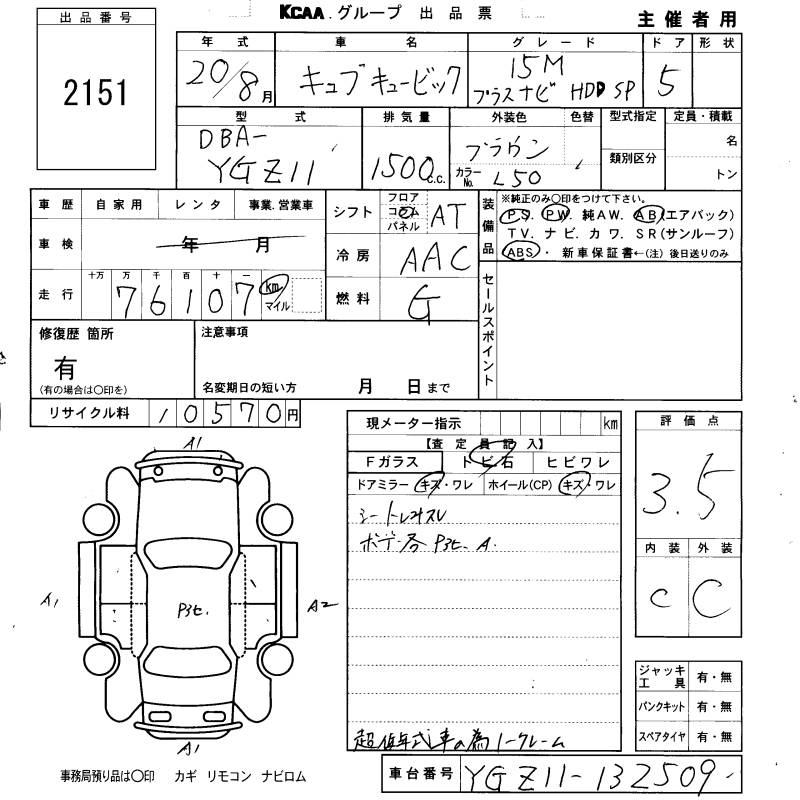 KCAA.グループ 出品票
主催者用
出品番号
2151
年式 車名 グレード ドア 形状
20/8月 キューブキュービック 15M プラスナビ HDD SP 5
型式 排気量 外装色 色替 型式指定 定員・積載
DBA-YGZ11 1500c.c. ブラウン
カラーNo. L50 類別区分 名
トン
車歴 自家用 レンタ 事業.営業車
車検 年 月
走行 十万 万 千 百 十 一
76107 km マイル
シフト フロア コラム パネル AT
冷房 AAC
燃料 G
装備品 ※純正のみ〇印をつけて下さい。
PS. PW. 純AW. AB(エアバック)
TV. ナビ. カワ. SR(サンルーフ)
ABS・ 新車保証書←(注) 後日送りのみ
セールスポイント
修復歴 箇所
有
(有の場合は〇印を)
注意事項
名変期日の短い方 月 日まで
リサイクル料 10570円
現メーター指示 km
【査定員記入】
Fガラス トビ石 ヒビワレ
ドアミラー キズ・ワレ ホイール(CP) キズ・ワレ
シートレ
ボデー各 P3セ. A.
超低年式車の為ノークレーム
評価点
3.5
内装 外装
C C
A1
A1 P3セ. A2
A1
ジャッキ工具 有・無
パンクキット 有・無
スペアタイヤ 有・無
事務局預り品は〇印 カギ リモコン ナビロム
車台番号 YGZ11-132509